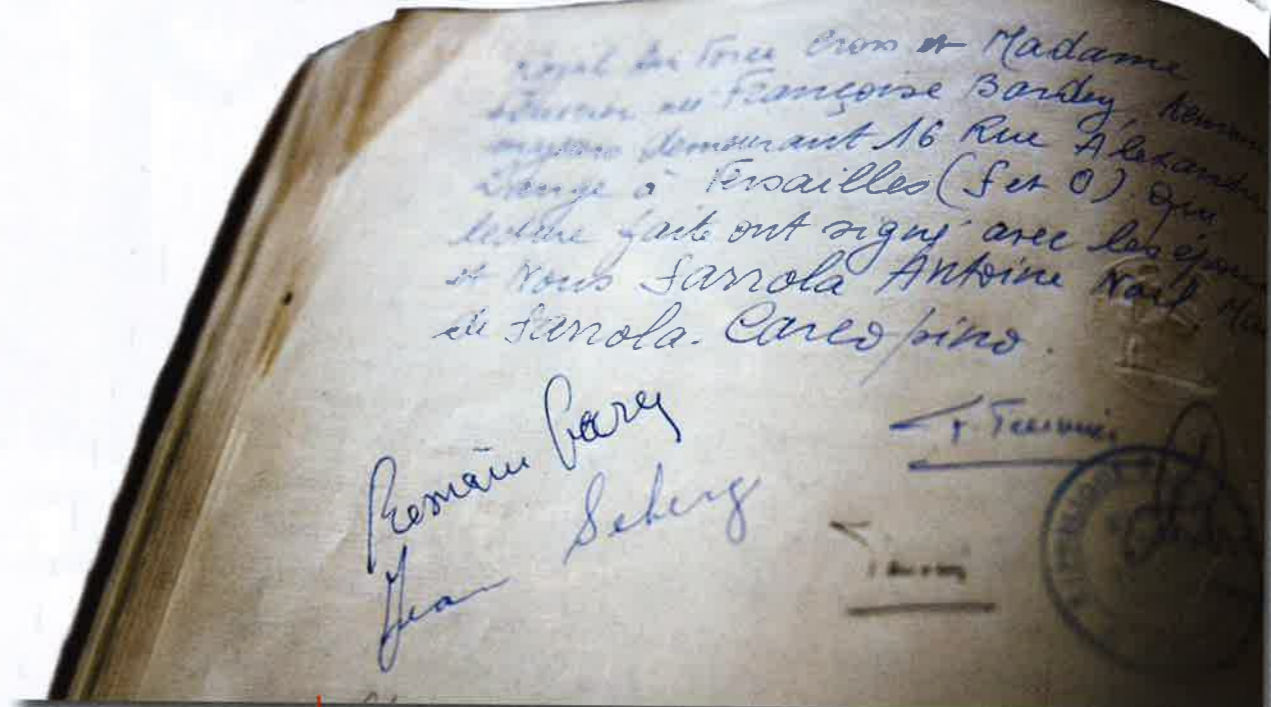 Royal Air Force Cross et Madame
née Françoise Barley,
demeurant 16 Rue Alexandre
Lange à Versailles (S et O). Qui,
lecture faite ont signé avec les époux
et Nous Sarrola Antoine Noël, Mai
de Sarrola-Carcopino.
Romain Gary
Jean Seberg